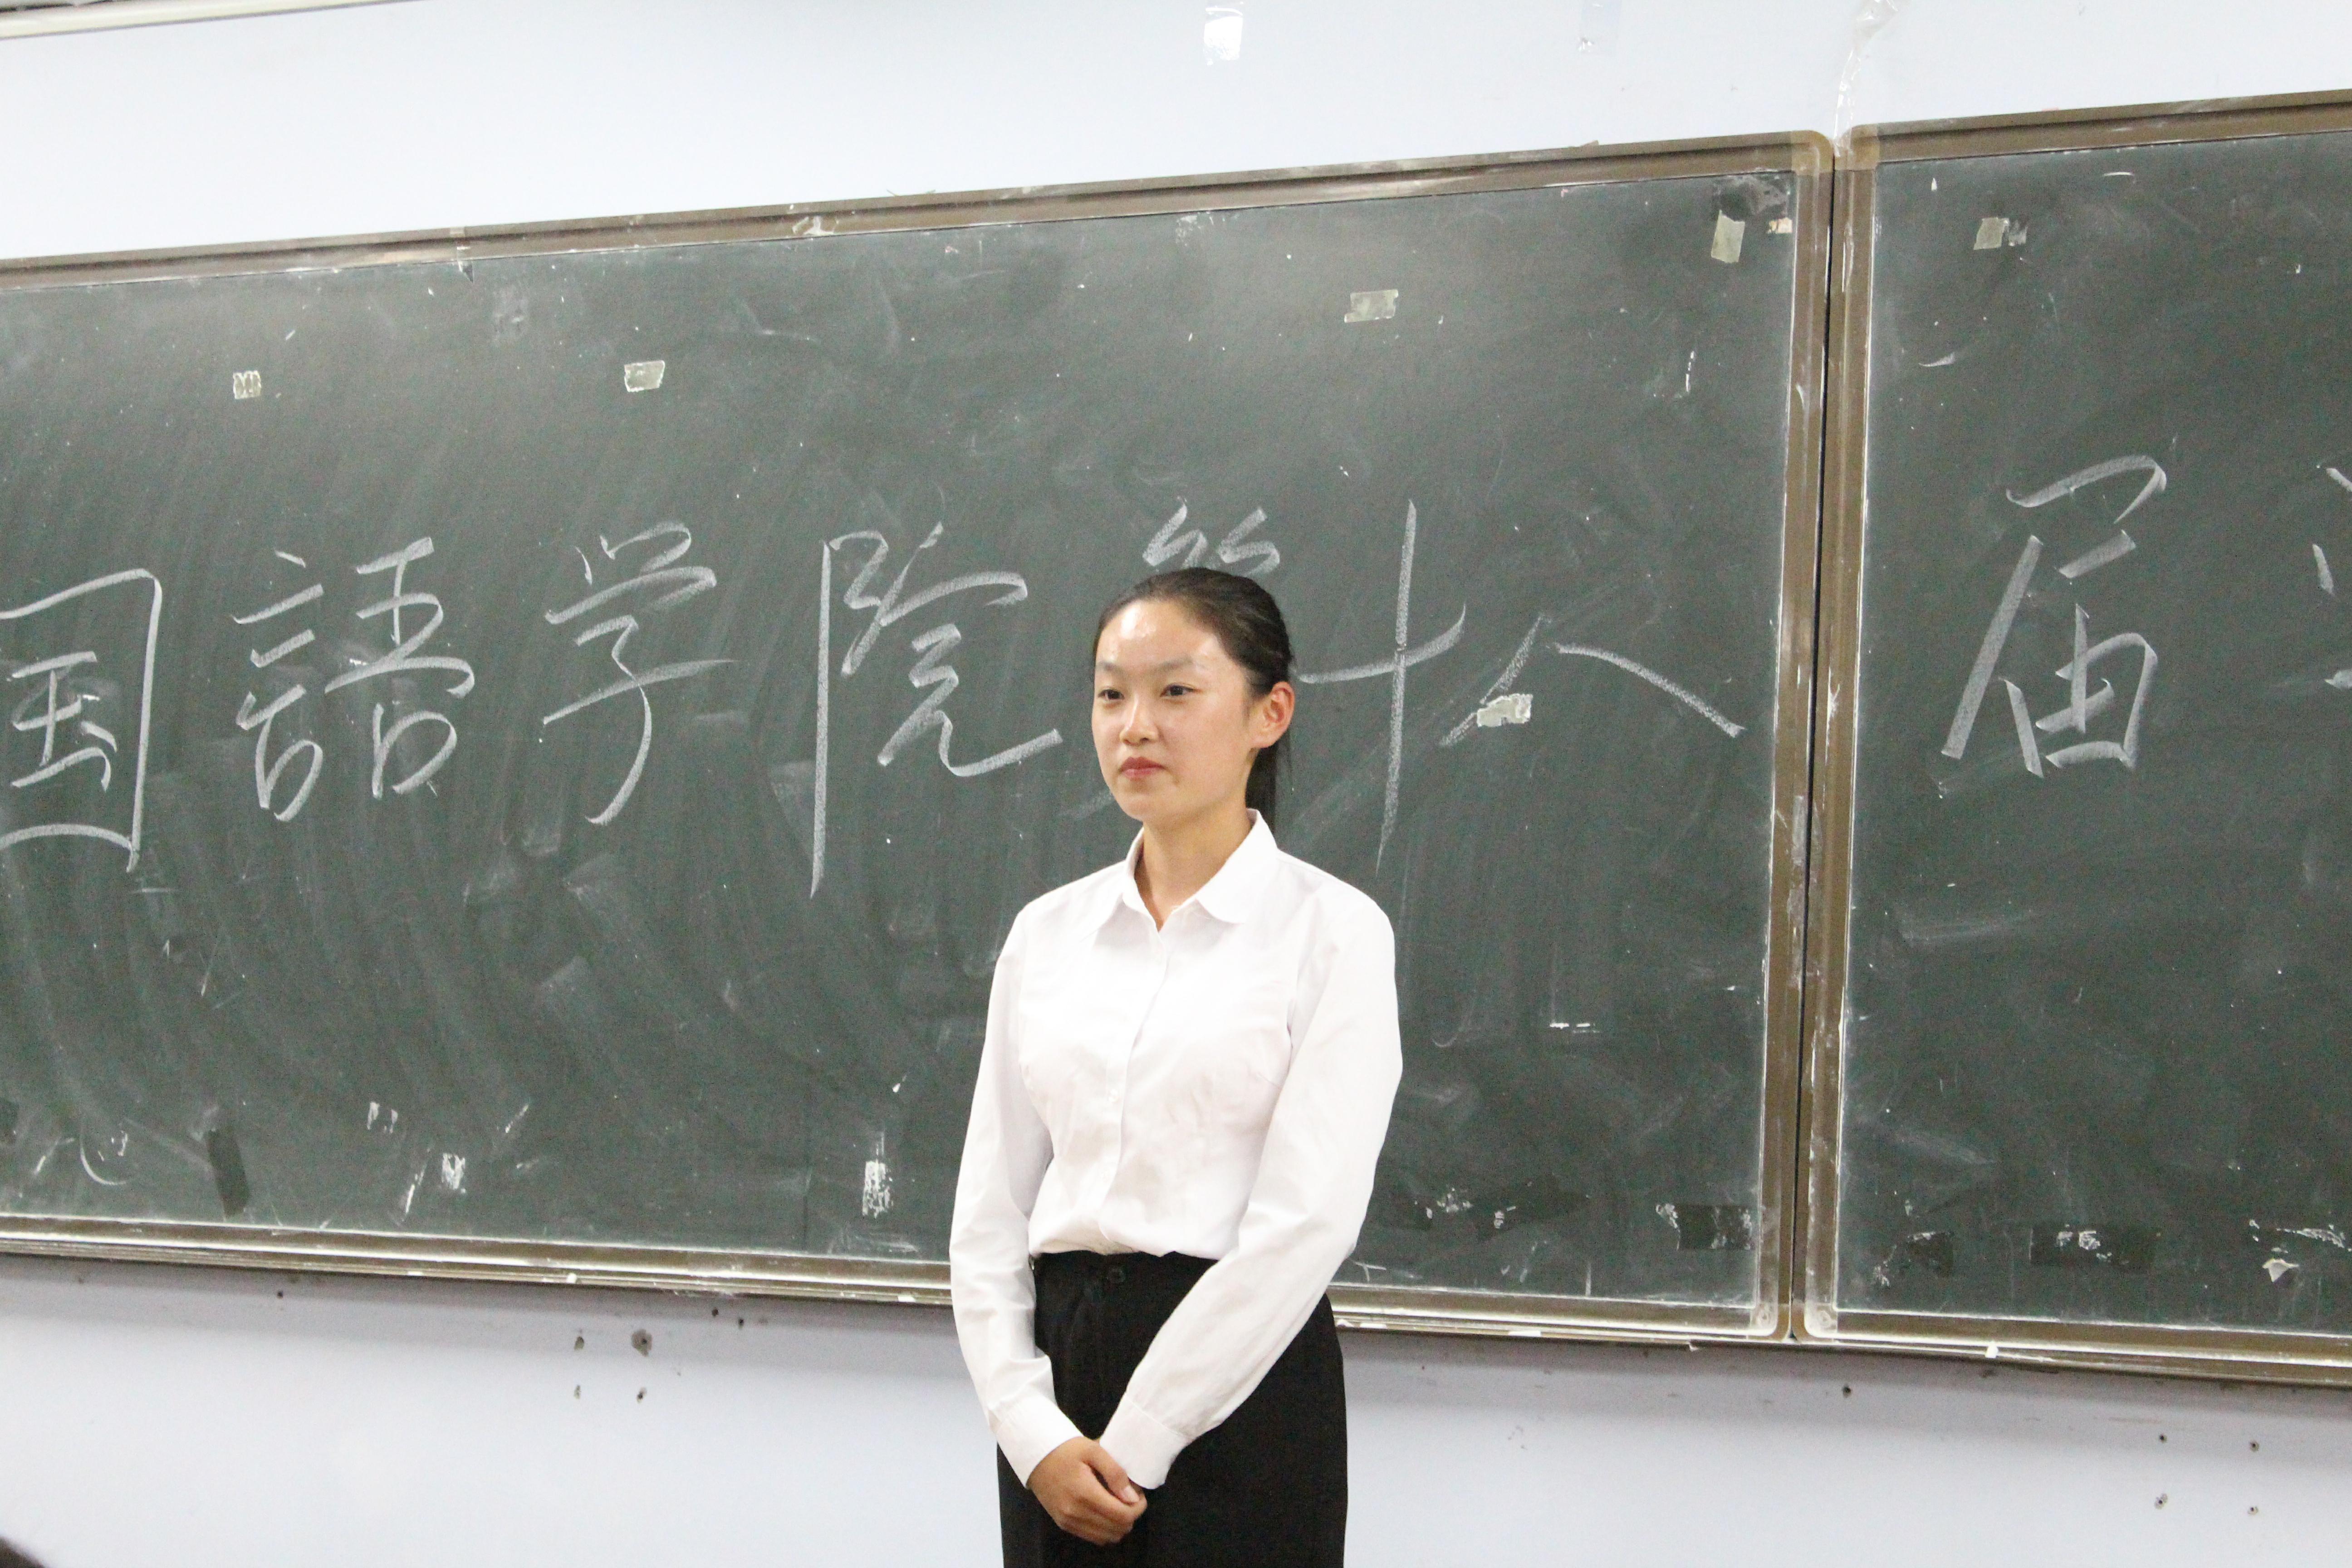 国語学院第十八届